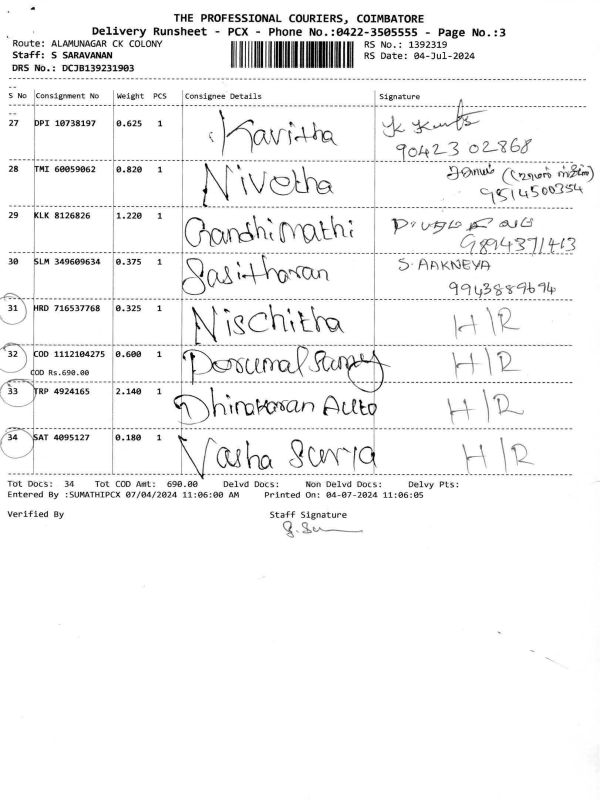 THE PROFESSIONAL COURIERS, COIMBATORE
Delivery Runsheet - PCX - Phone No.:0422-3505555 - Page No.:3
Route: ALAMUNAGAR CK COLONY RS No.: 1392319
Staff: S SARAVANAN RS Date: 04-Jul-2024
DRS No.: DCJB139231903
S No Consignment No Weight PCS Consignee Details Signature
27 DPI 10738197 0.625 1 Kavitha
90423 02868
28 TMI 60059062 0.820 1 Nivetha
9514500354
29 KLK 8126826 1.220 1 Gandhimathi
9894371413
30 SLM 349609634 0.375 1 Sasitharan S. AAKNEYA
9943889694
31 HRD 716537768 0.325 1 Nischitha H/R
32 COD 1112104275 0.600 1 H/R
COD Rs.690.00
33 TRP 4924165 2.140 1 Dhinakaran Auto H/R
34 SAT 4095127 0.180 1 Varsha Surya H/R
Tot Docs: 34 Tot COD Amt: 690.00 Delvd Docs: Non Delvd Docs: Delvy Pts:
Entered By :SUMATHIPCX 07/04/2024 11:06:00 AM Printed On: 04-07-2024 11:06:05
Verified By Staff Signature